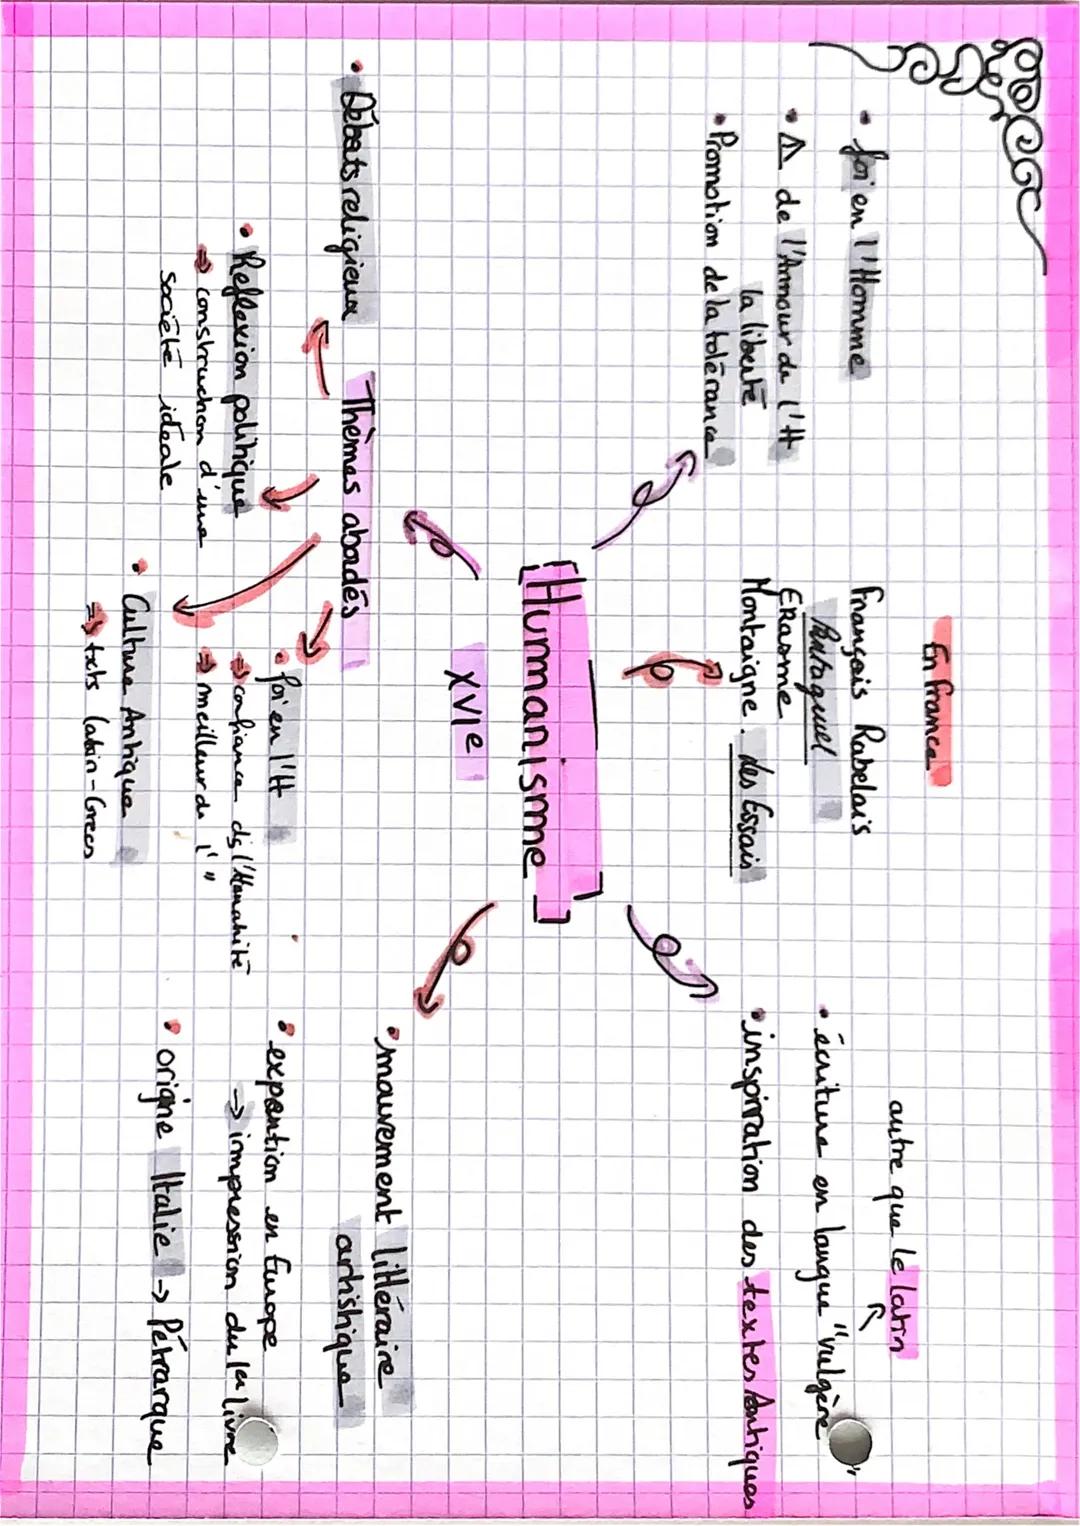 En France
• foi en l'Homme
• Δ de l'Amour de l'H
la liberté
• Promotion de la tolérance
François Rabelais
Pantagruel
ERasme
Montaigne. Les Essais
autre que le latin
• écriture en langue "vulgère"
• inspiration des textes Antiques
Humanisme
XVIe
Thèmes abordés
• Débats religieux
• Reflexion politique
⇒ construction d'une
société idéale
• foi en l'H
⇒ confiance ds l'Humanité
⇒ meilleur de l' "
• Culture Antique
⇒ txts latin-Grecs
• mouvement littéraire
artistique
• expantion en Europe
→ impression du 1er livre
• origine Italie → Pétrarque